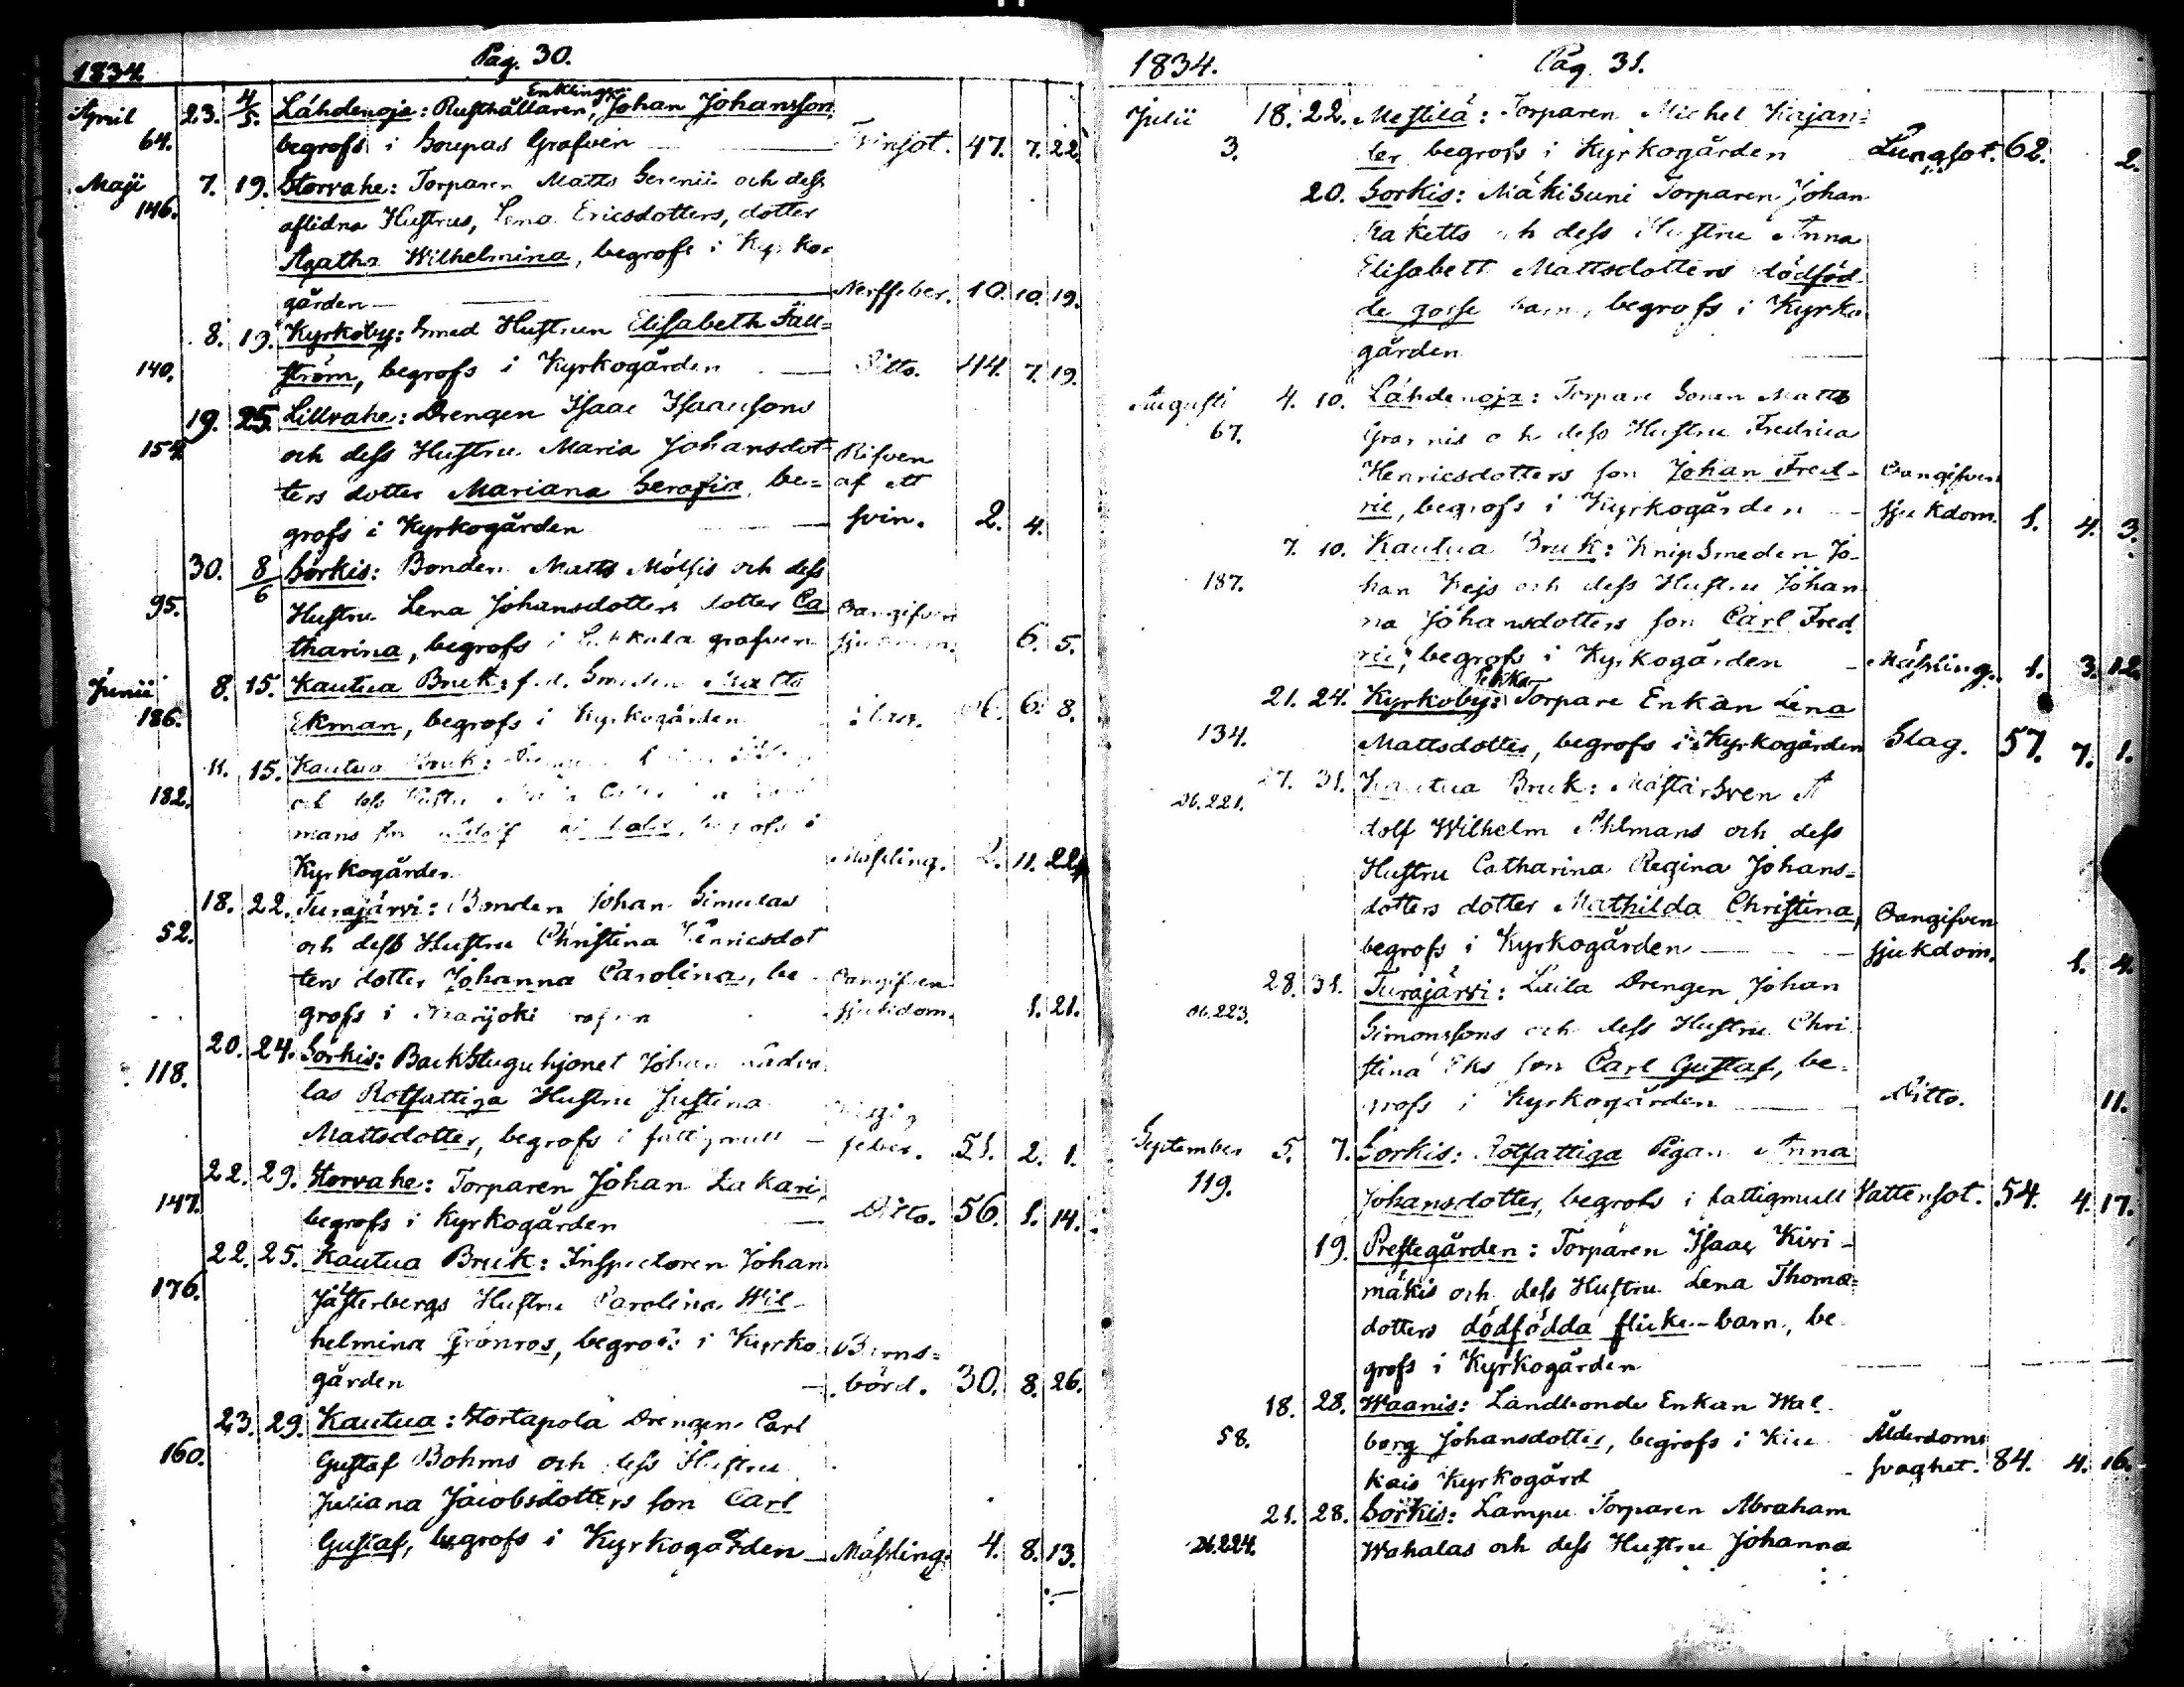 1834. Pag. 30.
April 23. 4/5. Lähdenoja: Rusthållaren, Enklingen Johan Johansson
64. begrofs i Soupas Grafven Tvinsot. 47. 7. 22.
Maji 7. 19. Storvahe: Torparen Matts Serenii och dess
146. aflidna Hustrus, Lena Ericsdotters, dotter
Agatha Wilhelmina, begrofs i Kyrko-
gården Nerffeber. 10. 10. 19.
8. 19. Kyrkoby: Smed Hustrun Elisabeth Fäll-
140. ström, begrofs i Kyrkogården Ditto. 44. 7. 19.
19. 25. Lillvahe: Drengen Isaac Isaacsons
154. och dess Hustru Maria Johansdot- Rifven
ters dotter Mariana Serafia, be- af ett
grofs i Kyrkogården svin. 2. 4.
30. 8/6 Sorkis: Bonden Matts Mölsis och dess
95. Hustru Lena Johansdotters dotter Ca Oangifven
tharina, begrofs i grafven 6. 5.
Junii 8. 15. Kautua Bruk: f.d. Smeden Matts
186. Ekman, begrofs i Kyrkogården 6. 8.
11. 15. Kautua Bruk:
182. och dess Hustru
mans son begrofs i
Kyrkogården Mässling. 2. 11. 22.
18. 22. Turajärvi: Bonden Johan Simulas
52. och dess Hustru Christina Henricsdot
ters dotter Johanna Carolina, be- Oangifven
grofs i sjukdom. 1. 21.
20. 24. Sorkis: Backstuguhjonet Johan
118. las Rotfattiga Hustru Justina
Mattsdotter, begrofs i fattigmull feber. 51. 2. 1.
22. 29. Storvahe: Torparen Johan Lakari,
147. begrofs i Kyrkogården Ditto. 56. 1. 14.
22. 25. Kautua Bruk: Inspectoren Johan
176. Jästerbergs Hustru Carolina Wil-
helmina Grönros, begrofs i Kyrko Barns-
gården börd. 30. 8. 26.
23. 29. Kautua: Stortapola Drengen Carl
160. Gustaf Bohms och dess Hustru
Juliana Jacobsdotters son Carl
Gustaf, begrofs i Kyrkogården Mässling. 4. 8. 13.
1834. Pag. 31.
Julii 18. 22. Mestilä: Torparen Michel Kajan-
3. ter begrofs i Kyrkogården Lungsot. 62. 2.
20. Sorkis: Mäkisuni Torparen Johan
Raketts och dess Hustru Anna
Elisabett Mattsdotters dödföd-
de gosse barn, begrofs i Kyrko
gården
Augusti 4. 10. Lähdenoja: Torpare Sonen Matts
67. Grannis och dess Hustru Fredrica
Henricsdotters son Johan Fred- Oangifven
ric, begrofs i Kyrkogården sjukdom. 1. 4. 3.
7. 10. Kautua Bruk: Knipsmeden Jo-
187. han Kejs och dess Hustru Johan
na Johansdotters son Carl Fred
ric, begrofs i Kyrkogården Mässling. 1. 3. 12.
21. 24. Kyrkoby: Pekka Torpare Enkan Lena
134. Mattsdotter, begrofs i Kyrkogården Slag. 57. 7. 1.
27. 31. Kautua Bruk: Mästarsven A
Db. 221. dolf Wilhelm Ahlmans och dess
Hustru Catharina Regina Johans-
dotters dotter Mathilda Christina, Oangifven
begrofs i Kyrkogården sjukdom. 1. 4.
28. 31. Turajärvi: Luila Drengen Johan
Db. 223. Simonssons och dess Hustru Chri
stina Eks son Carl Gustaf, be-
grofs i Kyrkogården Ditto. 11.
September 5. 7. Sorkis: Rotfattiga Pigan Anna
119. Johansdotter, begrofs i fattigmull Vattensot. 54. 4. 17.
19. Prestegården: Torparen Isaac Kivi-
mäkis och dess Hustru Lena Thomæ-
dotters dödfödda flicke-barn, be
grofs i Kyrkogården
18. 28. Waanis: Landbonde Enkan Wal
58. borg Johansdotter, begrofs i Kiu Ålderdoms
kais Kyrkogård svaghet. 84. 4. 16.
21. 28. Sorkis: Lampu Torparen Abraham
Db. 224. Wahalas och dess Hustru Johanna